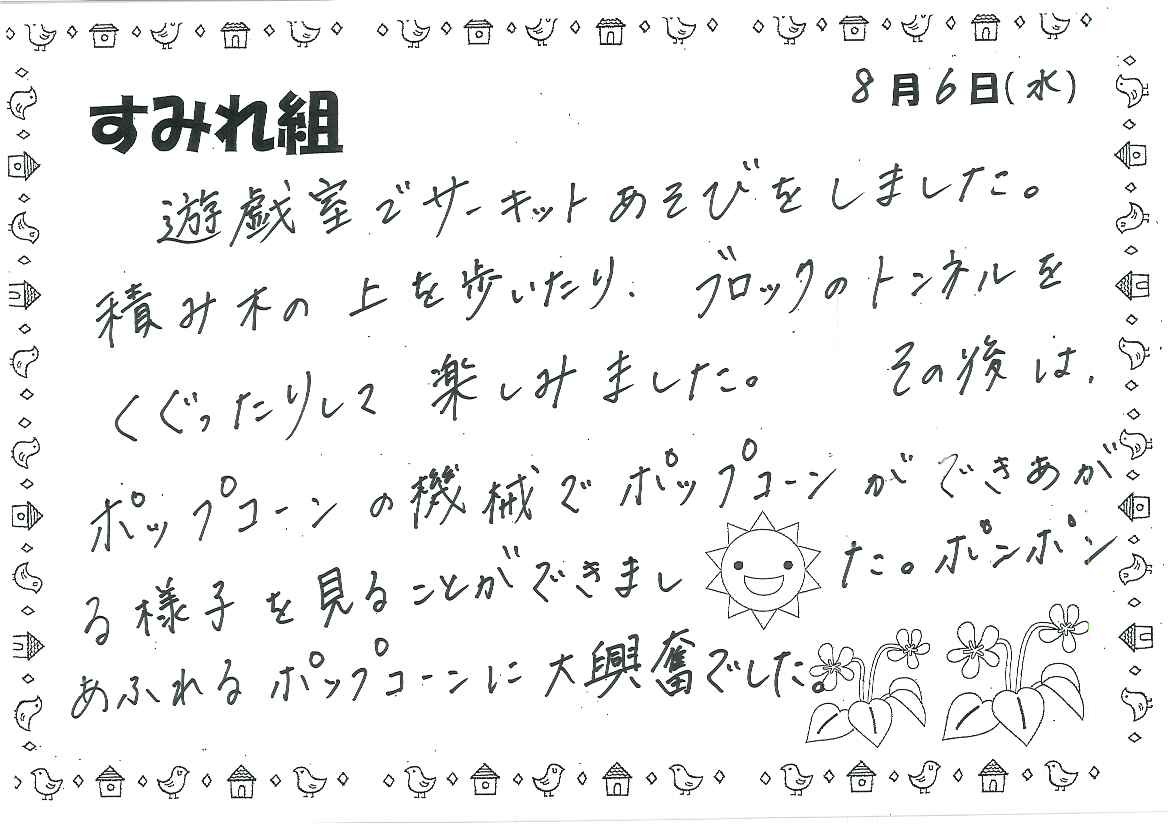 8月6日(水)
すみれ組
遊戯室でサーキットあそびをしました。
積み木の上を歩いたり、ブロックのトンネルを
くぐったりして楽しみました。その後は、
ポップコーンの機械でポップコーンができあが
る様子を見ることができました。ポンポン
あふれるポップコーンに大興奮でした。